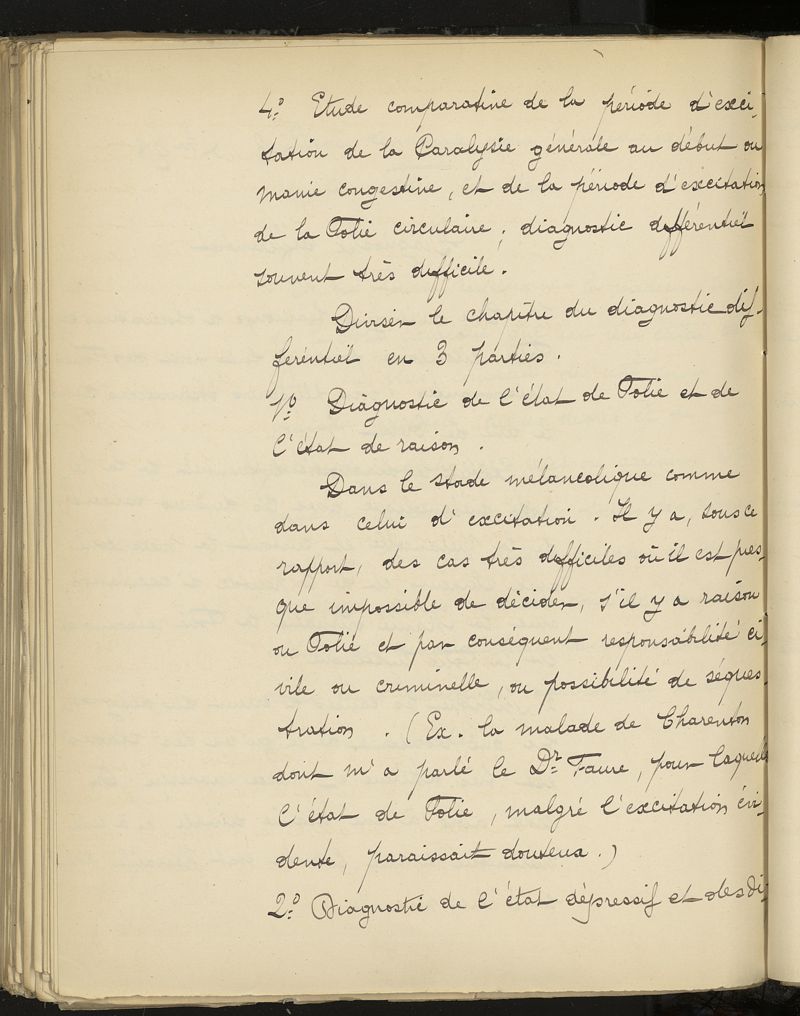 4.° Etude comparative de la période d'exci-
tation de la Paralysie générale au début ou
manie congestive, et de la période d'excitation
de la Folie circulaire; diagnostic différentiel
souvent très difficile.
Diviser le chapitre du diagnostic dif-
férentiel en 3 parties.
1.° Diagnostic de l'état de Folie et de
l'état de raison.
Dans le stade mélancolique comme
dans celui d'excitation. Il y a, sous ce
rapport, des cas très difficiles où il est pres-
que impossible de décider, s'il y a raison
ou Folie et par conséquent responsabilité ci-
vile ou criminelle, ou possibilité de séques-
tration. (Ex. la malade de Charenton
dont m'a parlé le Dr. Faure, pour laquelle
l'état de Folie, malgré l'excitation évi-
dente, paraissait douteux.)
2.° Diagnostic de l'état dépressif et des di-